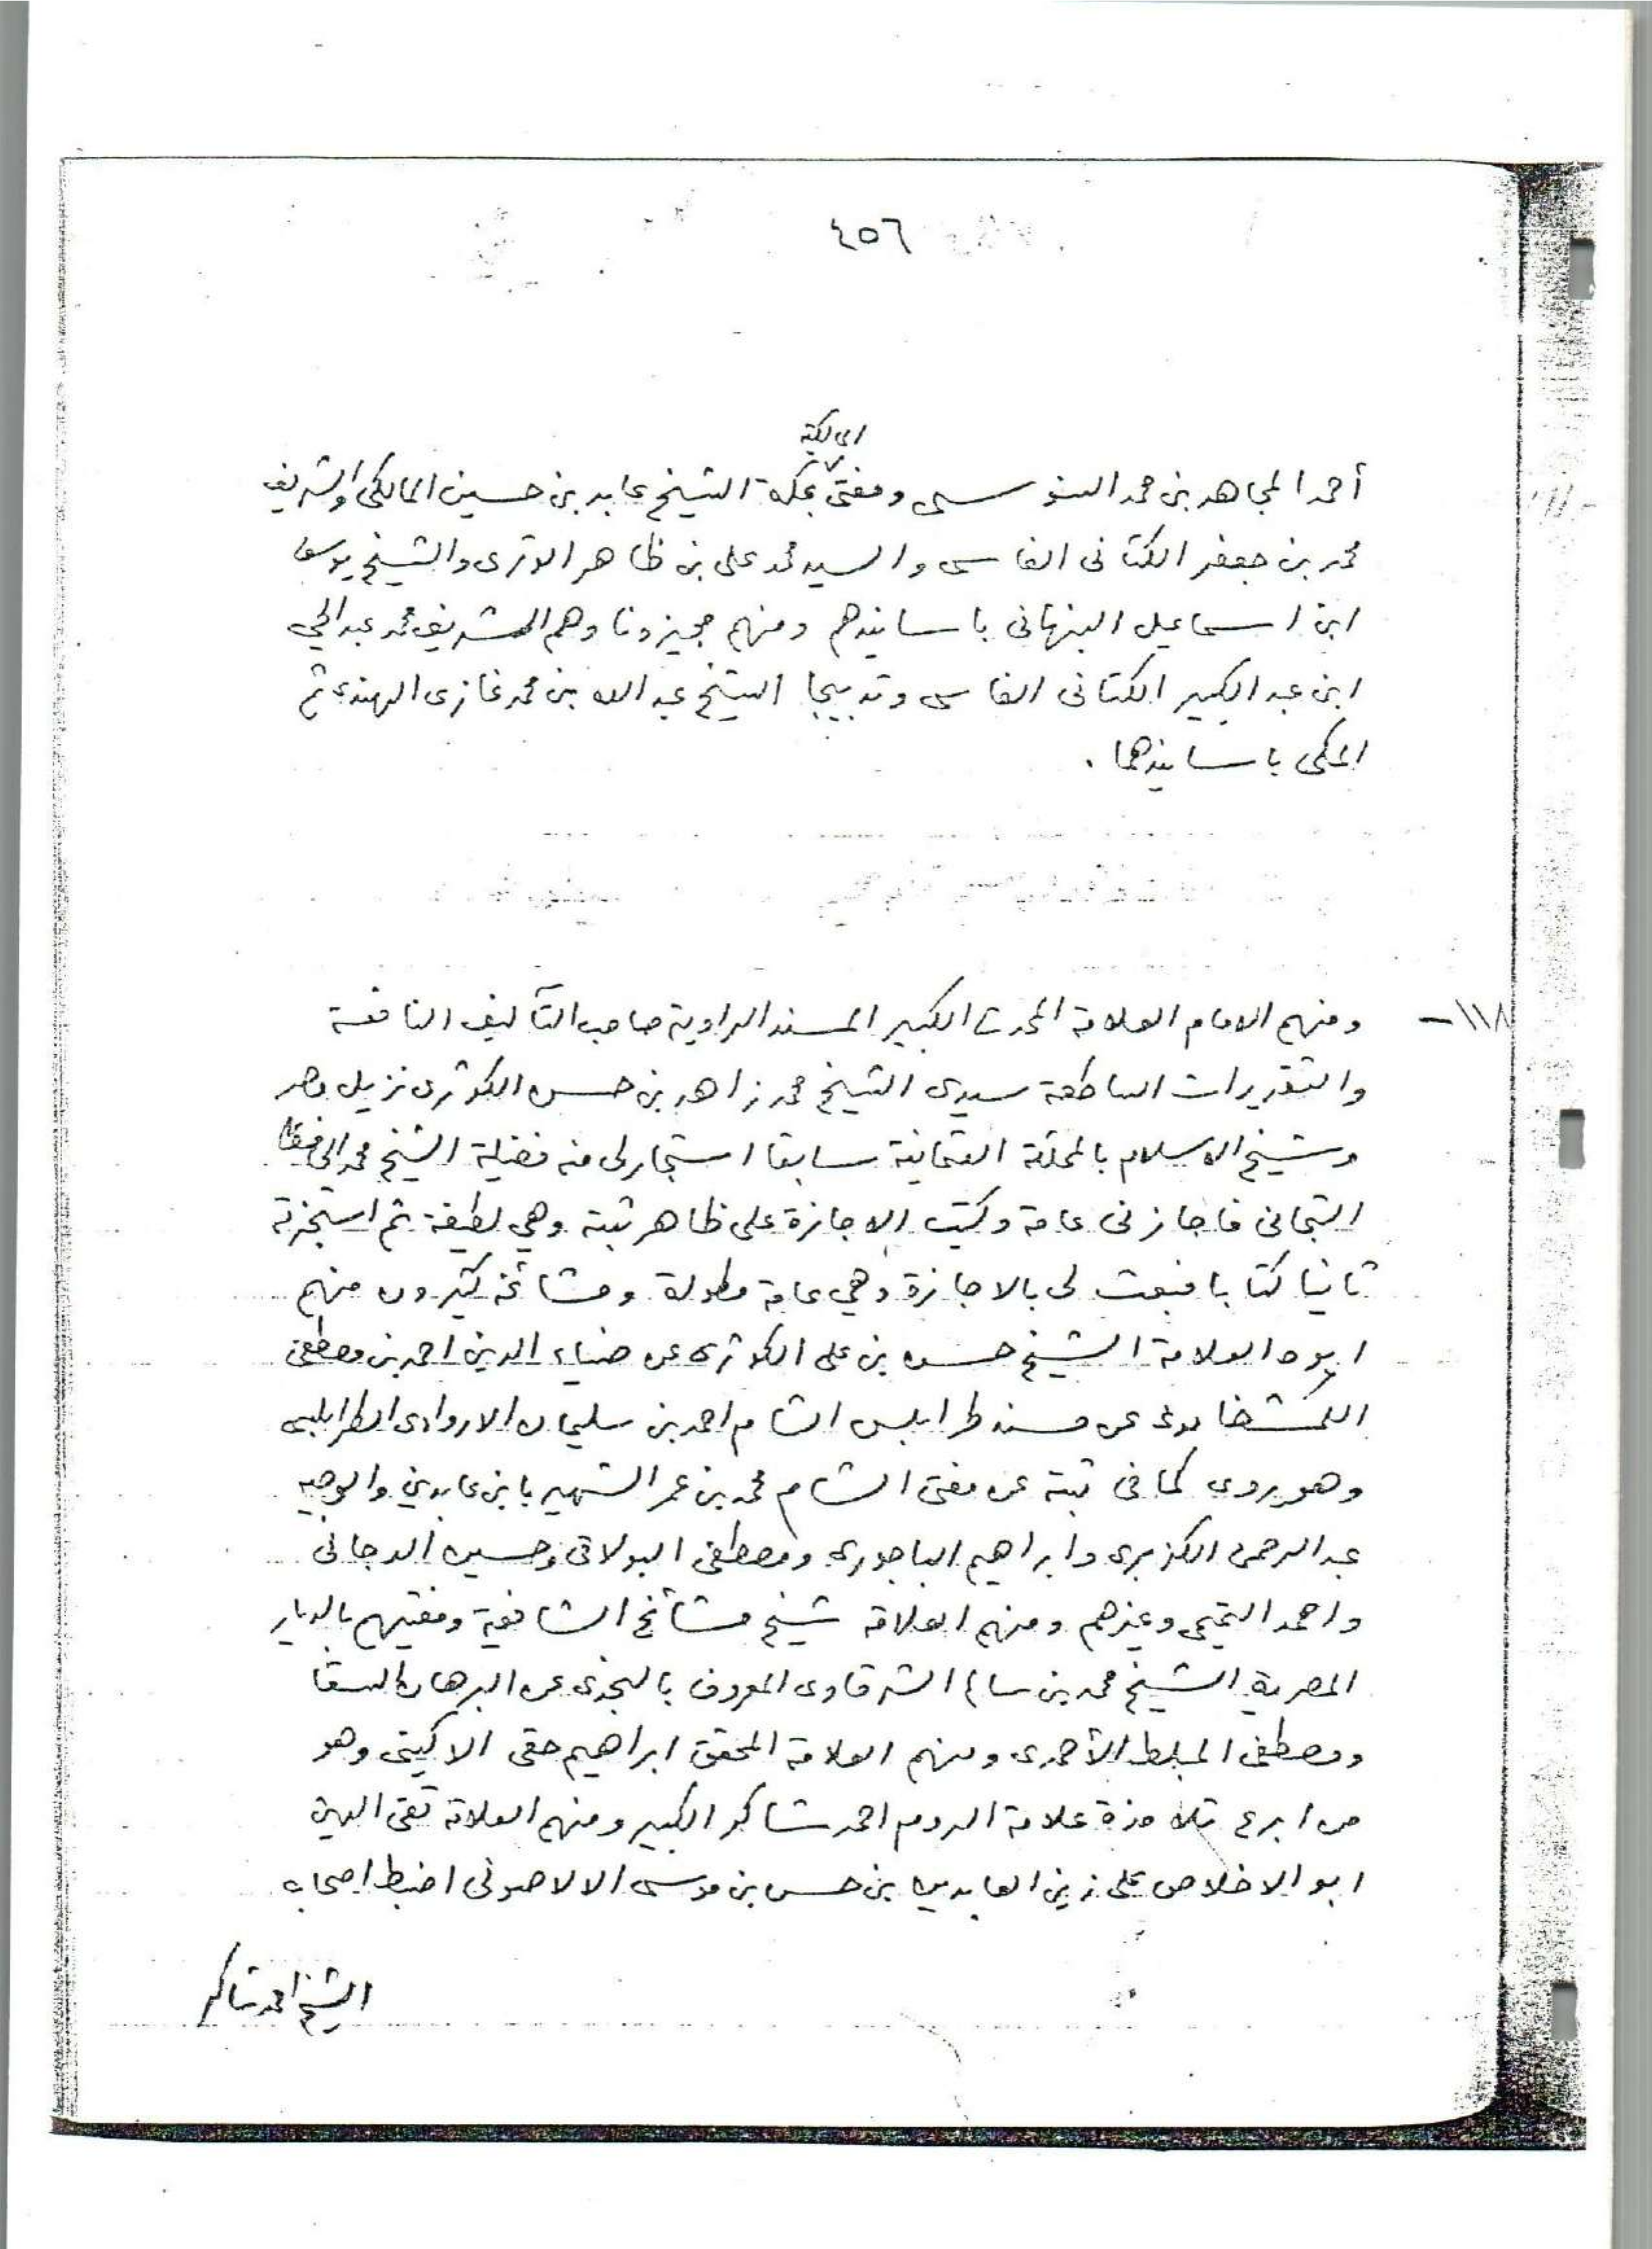 ٤٥٦
المالكية
أحمد المجاهد بن محمد السنوسى ومفتى بمكة الشيخ عابد بن حسين المالكى والشريف
محمد بن جعفر الكتانى الفاسى والسيد محمد على بن ظاهر الوترى والشيخ يوسف
ابن اسماعيل النبهانى باسانيدهم ومنهم مجيزونا وهم الشريف محمد عبد الحي
ابن عبد الكبير الكتانى الفاسى وتدبيجا الشيخ عبد الله بن محمد غازى الهندى ثم
المكى باسانيدهما .
١١٨ – ومنهم الامام العلامة المحدث الكبير المسند الراوية صاحب التآليف النافعة
والتقريرات الساطعة سيدى الشيخ محمد زاهد بن حسن الكوثرى نزيل مصر
وشيخ الاسلام بالمملكة العثمانية سابقا استجار لى منه فضيلة الشيخ محمد الحافظ
التجانى فاجازنى عامة وكتب الاجازة على ظاهر ثبته وهي لطيفة ثم استجزته
ثانيا كتابا فبعث لى بالاجازة وهي عامة مطولة ومشائخه كثيرون منهم
ابوه العلامة الشيخ حسن بن على الكوثرى عن ضياء الدين احمد بن مصطفى
الكمشخانوى عن مسند طرابلس الشام احمد بن سليمان الاروادى الطرابلسى
وهو يروى كما فى ثبته عن مفتى الشام محمد بن عمر الشهير بابن عابدين والوجيه
عبد الرحمن الكزبرى وابراهيم الباجورى ومصطفى البولاقى وحسين الدجانى
واحمد التميمى وغيرهم ومنهم العلامة شيخ مشائخ الشافعية ومفتيهم بالديار
المصرية الشيخ محمد بن سالم الشرقاوى المعروف بالنجدى عن البرهان السقا
ومصطفى المبلط الأحمدى ومنهم العلامة المحقق ابراهيم حقى الاكينى وهو
من ابرع تلامذة علامة الروم احمد شاكر الكبير ومنهم العلامة تقى الدين
ابو الاخلاص على زين العابدين بن حسن بن موسى الالاصونى اضبط اصحاب
الشيخ احمد شاكر